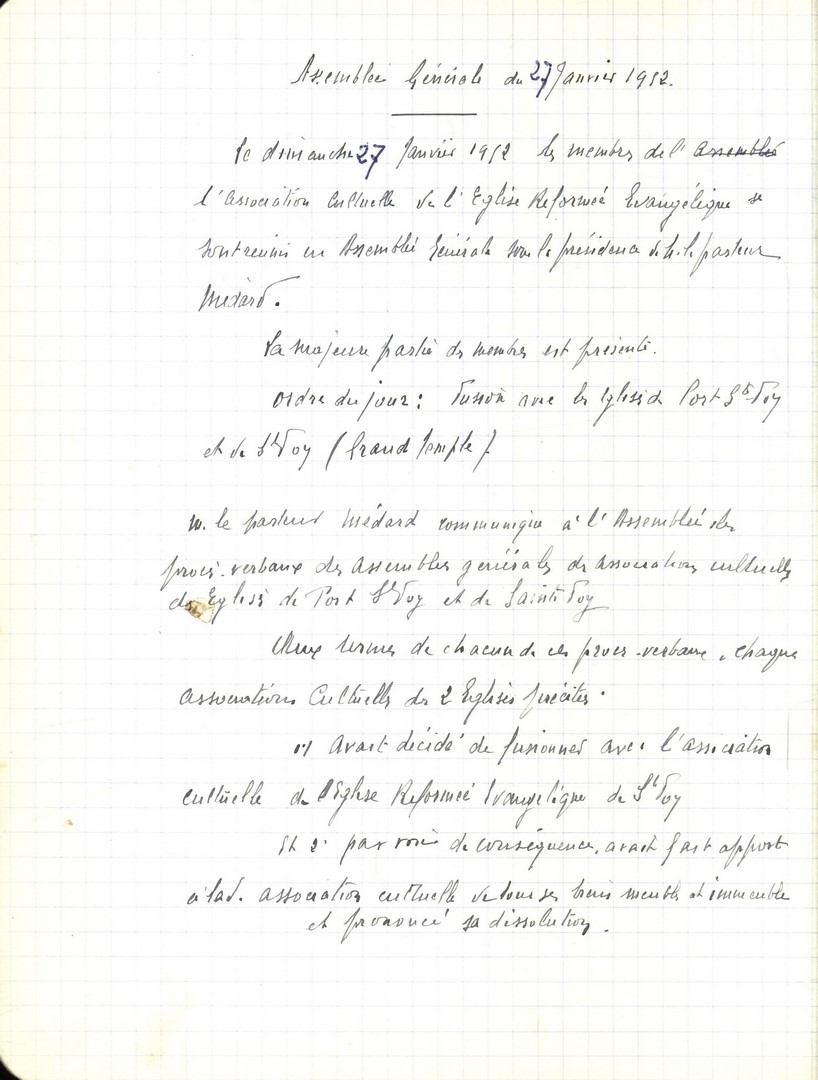 Assemblée Générale du 27 Janvier 1952.
Le dimanche 27 Janvier 1952 les membres de l' Assemblée
l'Association Cultuelle de l'Eglise Reformée Evangélique se
sont réunis en Assemblée Générale sous la présidence de M. le pasteur
Médard.
La majeure partie des membres est présente.
Ordre du jour : Fusion avec les Eglises de Port Ste Foy
et de Ste Foy (Grand Temple).
M. le pasteur Médard communique à l'Assemblée des
procès-verbaux des Assemblées générales des associations cultuelles
des Eglises de Port Ste Foy et de Sainte Foy
Aux termes de chacun de ces procès-verbaux, chaque
associations Cultuelle des 2 Eglises précitées.
1°) Avait décidé de fusionner avec l'association
cultuelle de l'Eglise Reformée Evangélique de Ste Foy
Et 2° par voie de conséquence, avait fait apport
à lad. association cultuelle de tous ses biens meubles et immeuble
et prononcé sa dissolution.